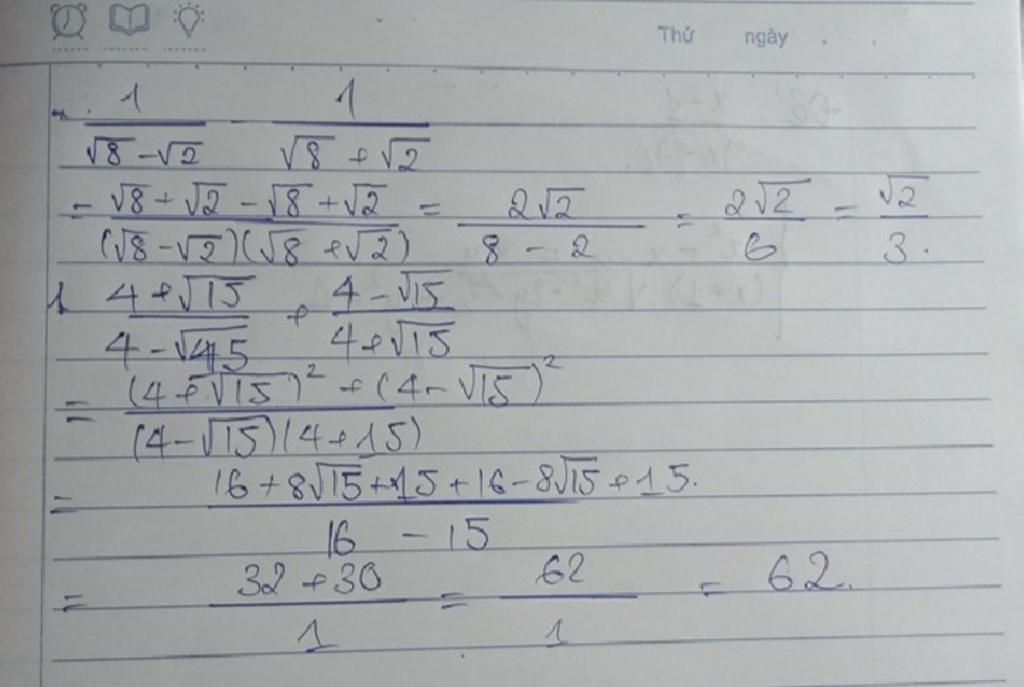 Thứ ngày . .
- 1/(√8 - √2) - 1/(√8 + √2)
= (√8 + √2 - √8 + √2)/((√8 - √2)(√8 + √2)) = 2√2/(8 - 2) = 2√2/6 = √2/3.
(4 + √15)/(4 - √15) + (4 - √15)/(4 + √15)
= ((4 + √15)² + (4 - √15)²)/((4 - √15)(4 + 15))
= (16 + 8√15 + 15 + 16 - 8√15 + 15.)/(16 - 15)
= (32 + 30)/1 = 62/1 = 62.